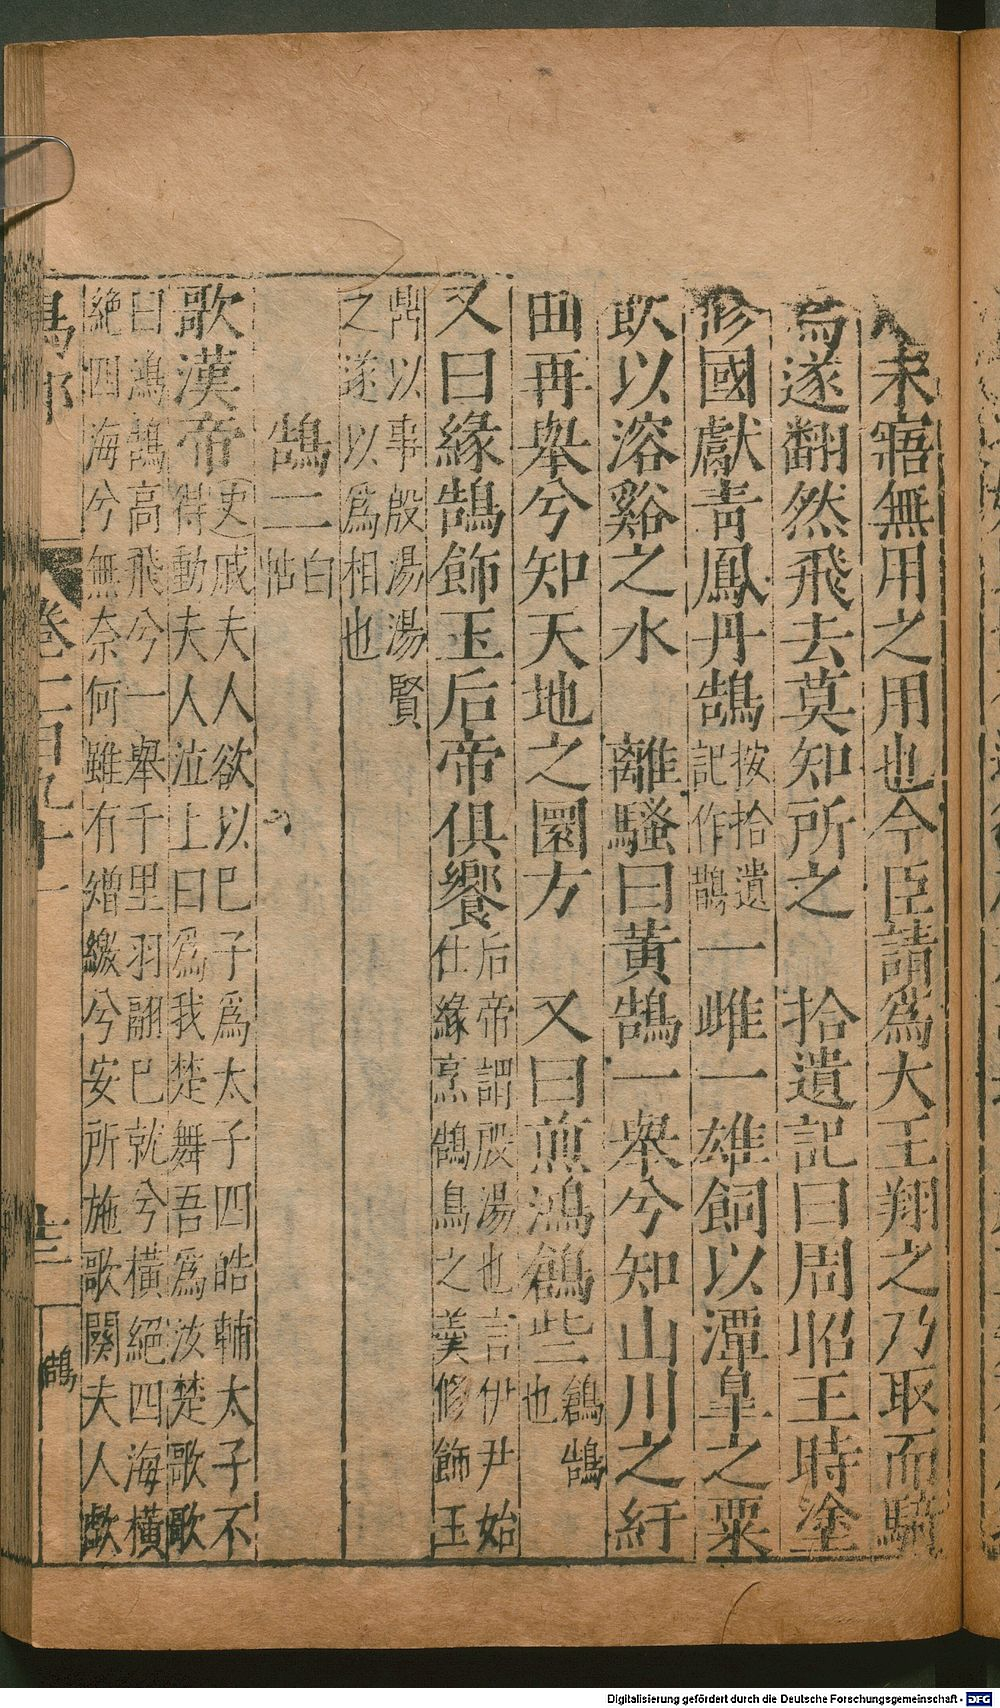 未寤無用之用也今臣請爲大王翔之乃取而騎
焉遂翻然飛去莫知所之 拾遺記曰周昭王時塗
修國獻青鳳丹鵠按拾遺記作鵲一雌一雄飼以潭皐之粟
飲以溶谿之水 離騷曰黃鵠一舉兮知山川之紆
曲再舉兮知天地之圜方 又曰煎鴻鶬些鶬鵠也
又曰緣鵠飾玉后帝俱饗后帝謂殷湯也言伊尹始仕緣烹鵠鳥之羹修飾玉
鼎以事殷湯湯賢之遂以爲相也
鵠二白帖
歌漢帝史戚夫人欲以巳子爲太子四皓輔太子不得動夫人泣上曰爲我楚舞吾爲汝楚歌歌
曰鴻鵠高飛兮一舉千里羽翮巳就兮橫絕四海橫絕四海兮無奈何雖有矰繳兮安所施歌闋夫人歔
鳥部 卷二百九十一 十三 鵠
Digitalisierung gefördert durch die Deutsche Forschungsgemeinschaft - DFG